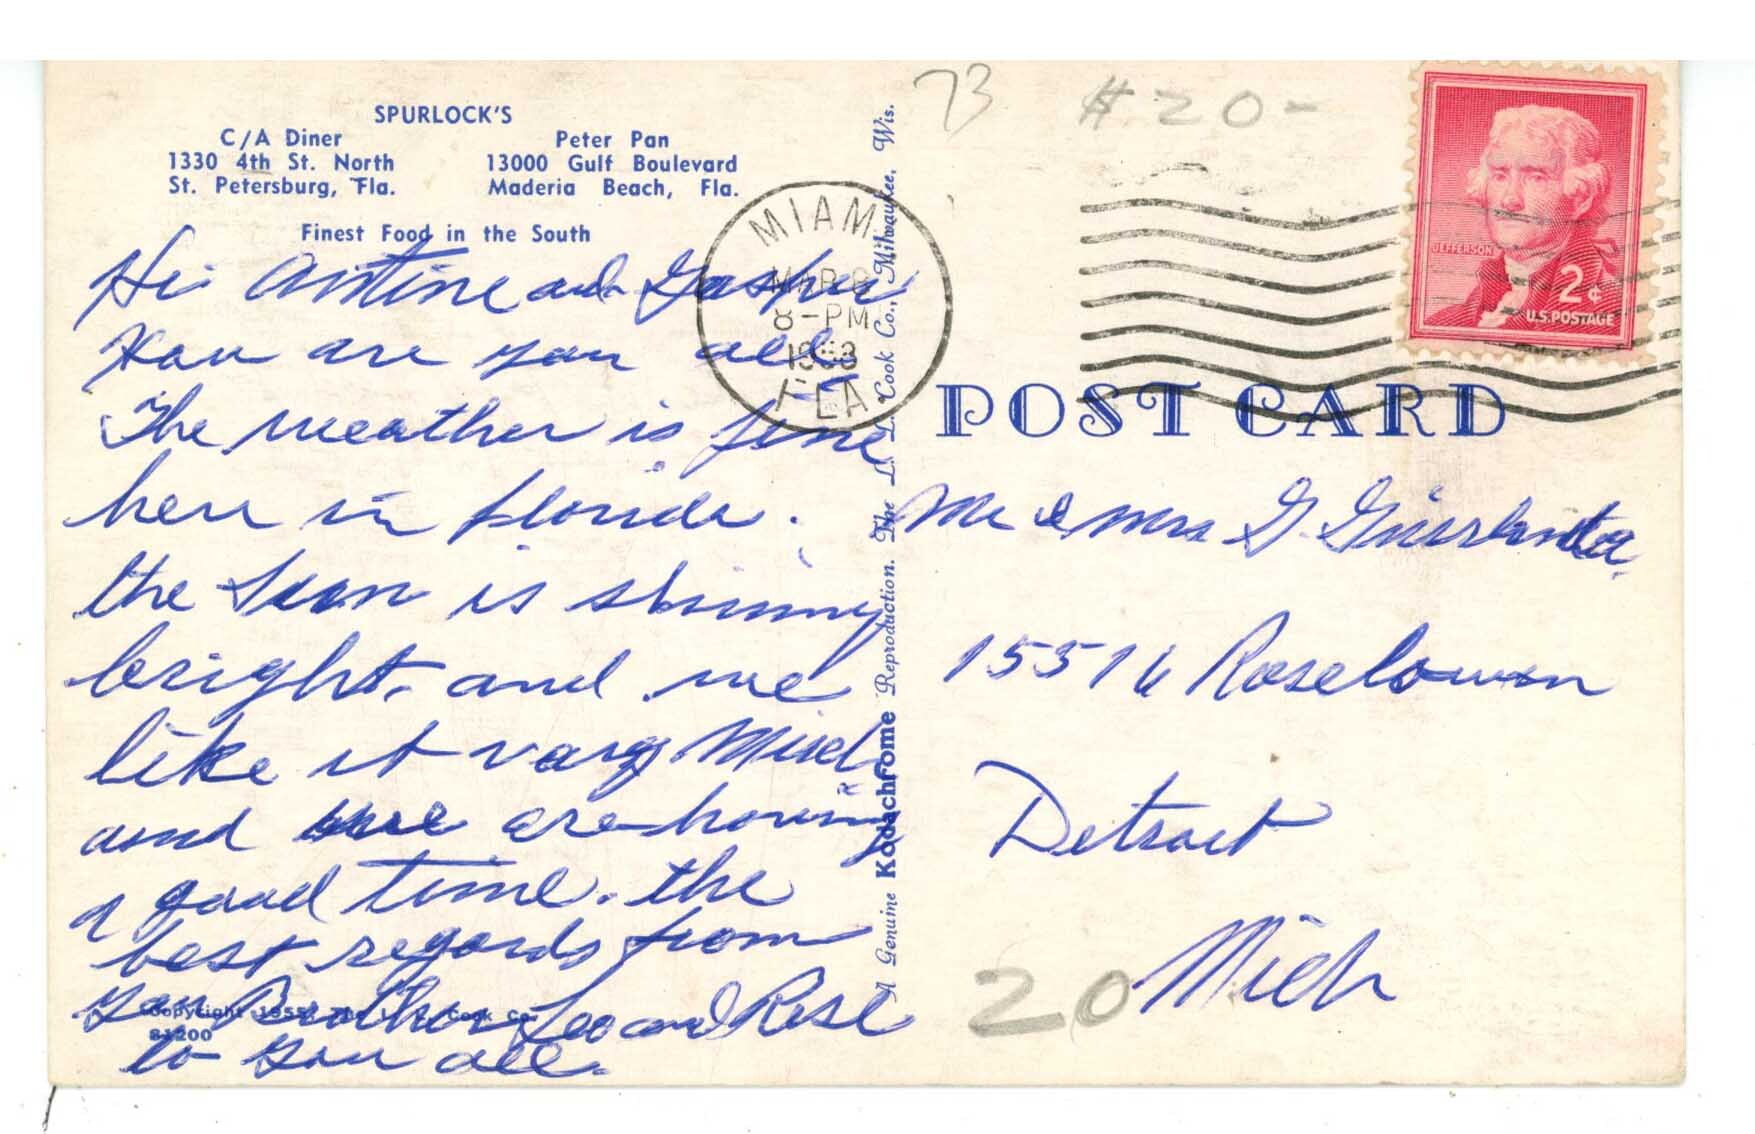 SPURLOCK'S
C/A Diner Peter Pan
1330 4th St. North 13000 Gulf Boulevard
St. Petersburg, Fla. Maderia Beach, Fla.
Finest Food in the South
Hi Antine and Gasper
How are you all
The weather is fine
here in florida.
the Sun is shinny
bright, and we
like it vary Much
and we are having
a good time. the
best regards from
your Brother Leo and Rose
to you all.
Copyright 1955, The L. L. Cook Co.
81200
A Genuine Kodachrome Reproduction. The L. L. Cook Co., Milwaukee, Wis.
73
#20-
MIAMI
MAR
8-PM
FLA
JEFFERSON
2¢
U.S. POSTAGE
POST CARD
Mr & Mrs G.
15516 Roselawn
Detroit
Mich
20